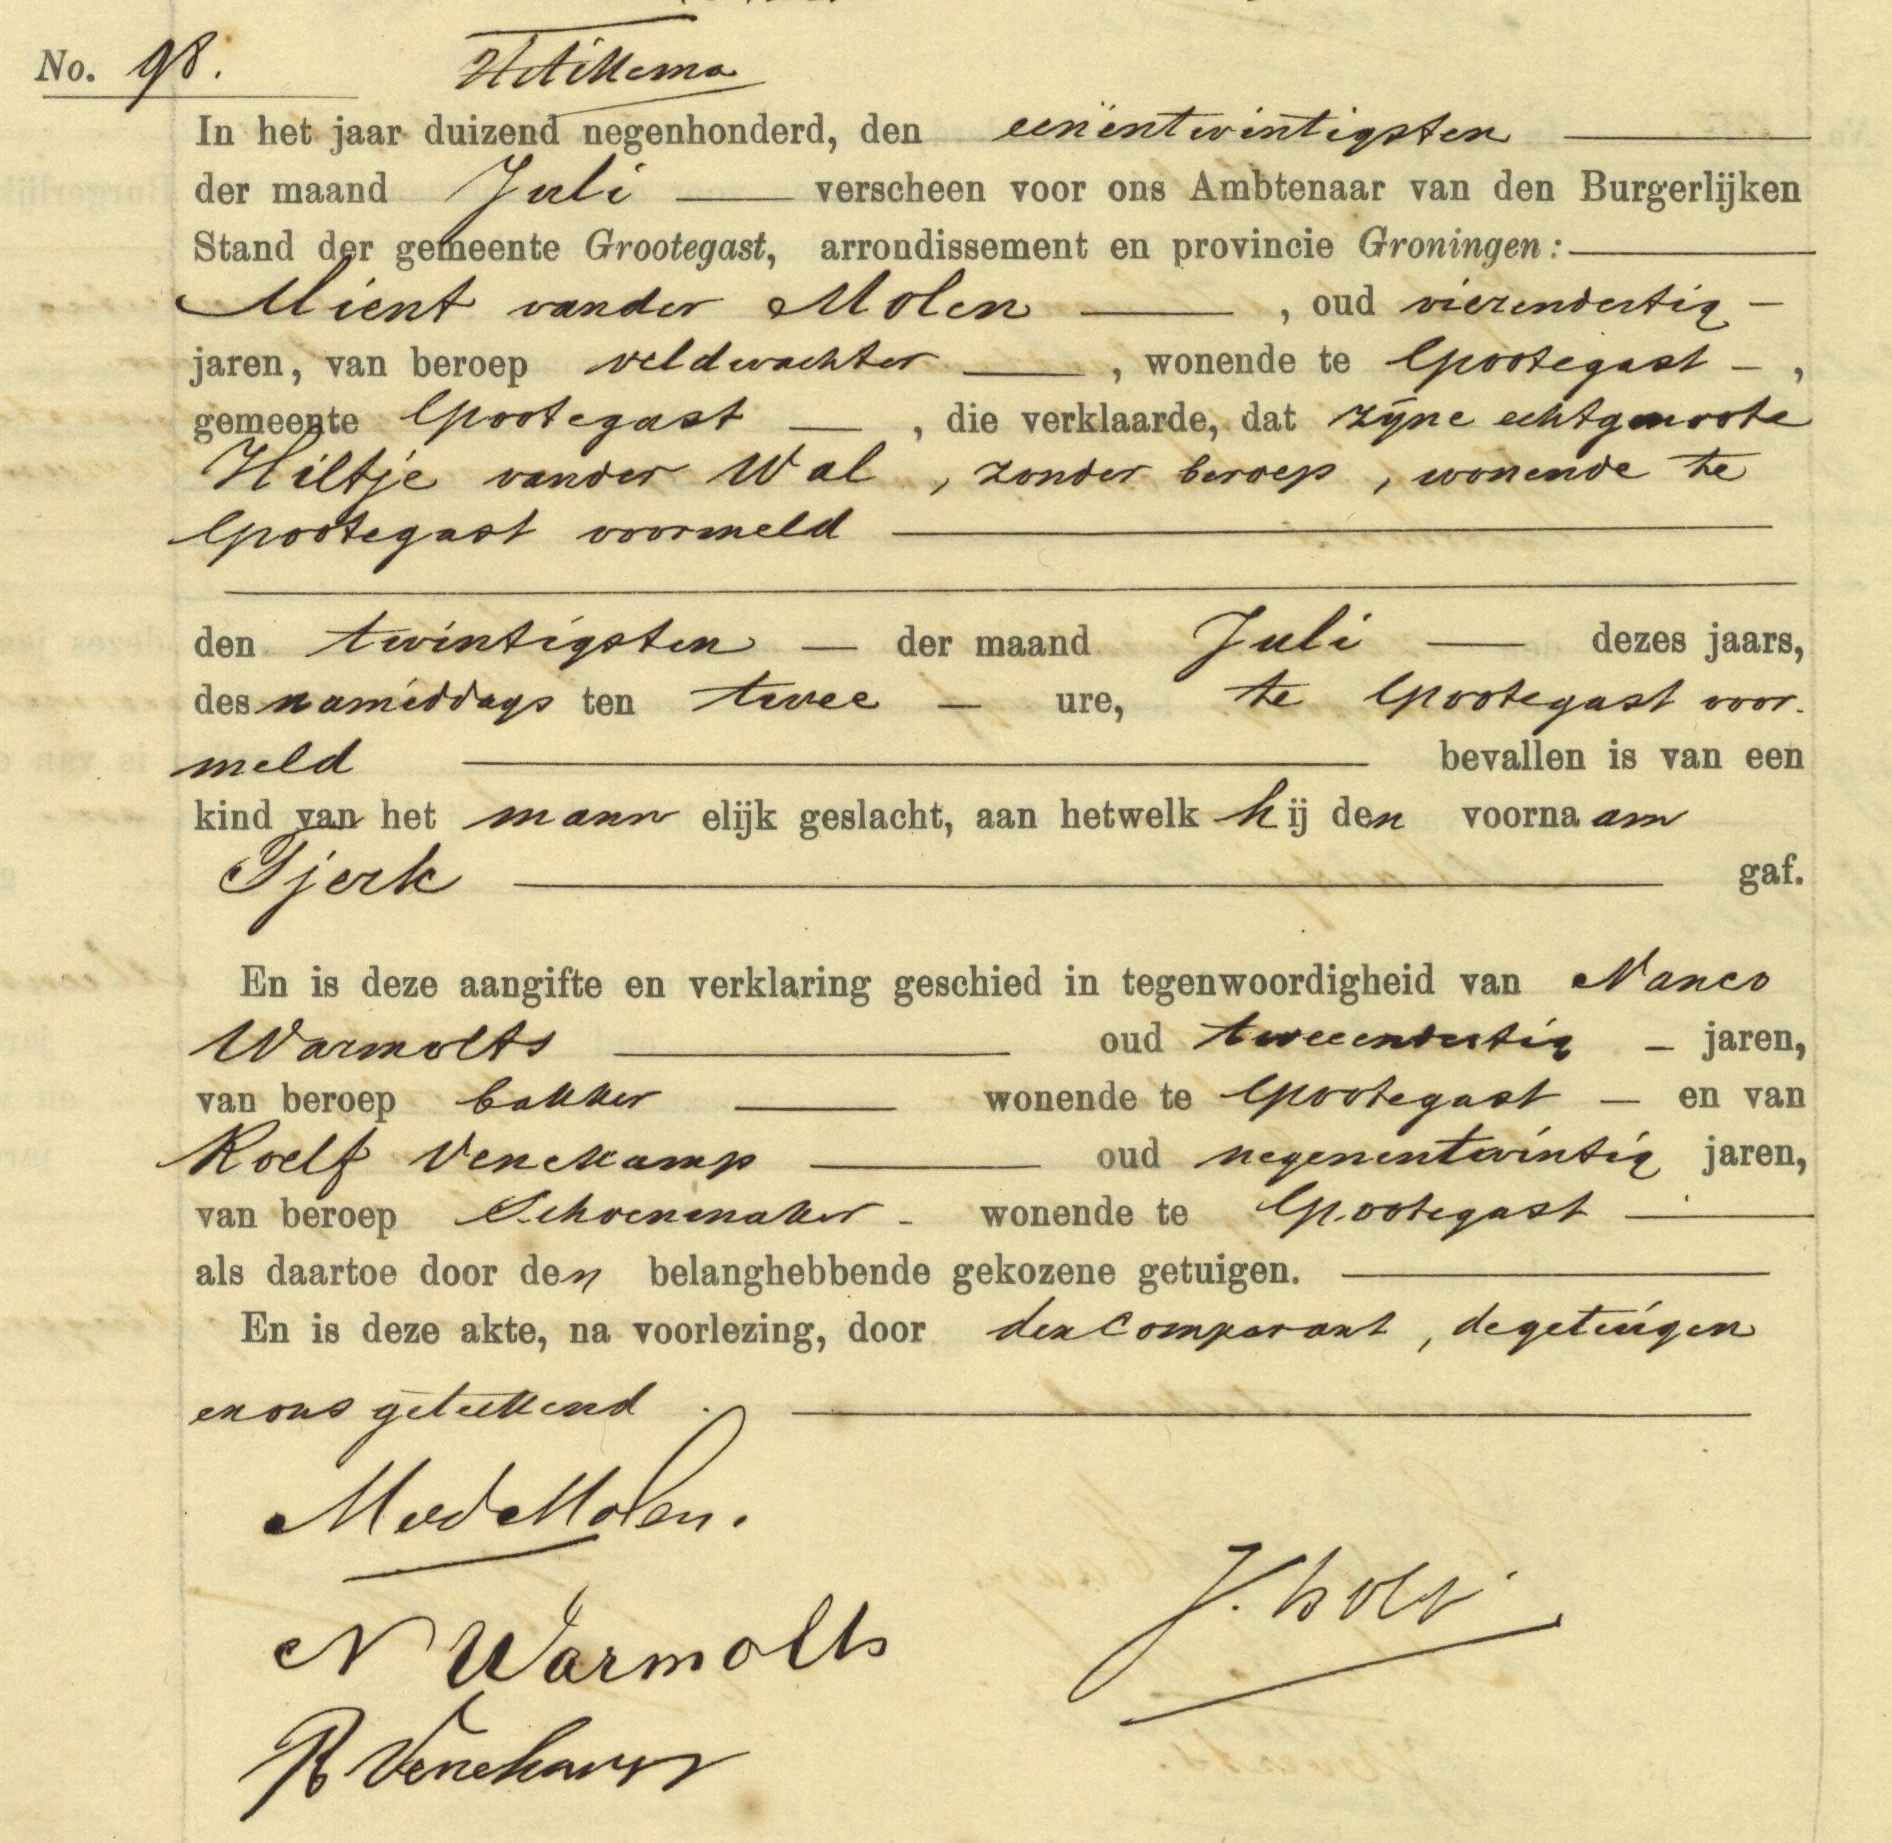 No. 98.
In het jaar duizend negenhonderd, den eenëntwintigsten
der maand Juli verscheen voor ons Ambtenaar van den Burgerlijken
Stand der gemeente Grootegast, arrondissement en provincie Groningen:
Mient vander Molen, oud vierendertig
jaren, van beroep veldwachter, wonende te Grootegast,
gemeente Grootegast, die verklaarde, dat zijne echtgenoote
Hiltje vander Wal, zonder beroep, wonende te
Grootegast voormeld
den twintigsten der maand Juli dezes jaars,
des namiddags ten twee ure, te Grootegast voor-
meld bevallen is van een
kind van het mannelijk geslacht, aan hetwelk hij den voornaam
Tjerk gaf.
En is deze aangifte en verklaring geschied in tegenwoordigheid van Nanco
Warmolts oud tweeendertig jaren,
van beroep bakker wonende te Grootegast en van
Roelf Venekamp oud negenentwintig jaren,
van beroep Schoenmaker wonende te Grootegast
als daartoe door den belanghebbende gekozene getuigen.
En is deze akte, na voorlezing, door den Comparant, de getuigen
en ons geteekend.
MvdMolen.
N Warmolts
R Venekamp